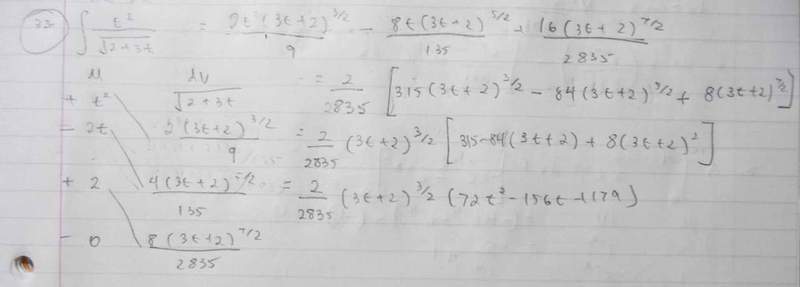 23. ∫ t² / √(2+3t) = 2t²(3t+2)^(3/2) / 9 - 8t(3t+2)^(5/2) / 135 + 16(3t+2)^(7/2) / 2835
u dv = 2/2835 [315(3t+2)^(3/2) - 84(3t+2)^(3/2) + 8(3t+2)^(7/2)]
+ t² √(2+3t)
- 2t 2(3t+2)^(3/2) / 9 = 2/2835 (3t+2)^(3/2) [315-84(3t+2) + 8(3t+2)²]
+ 2 4(3t+2)^(5/2) / 135 = 2/2835 (3t+2)^(3/2) (72t² - 156t + 179)
- 0 8(3t+2)^(7/2) / 2835